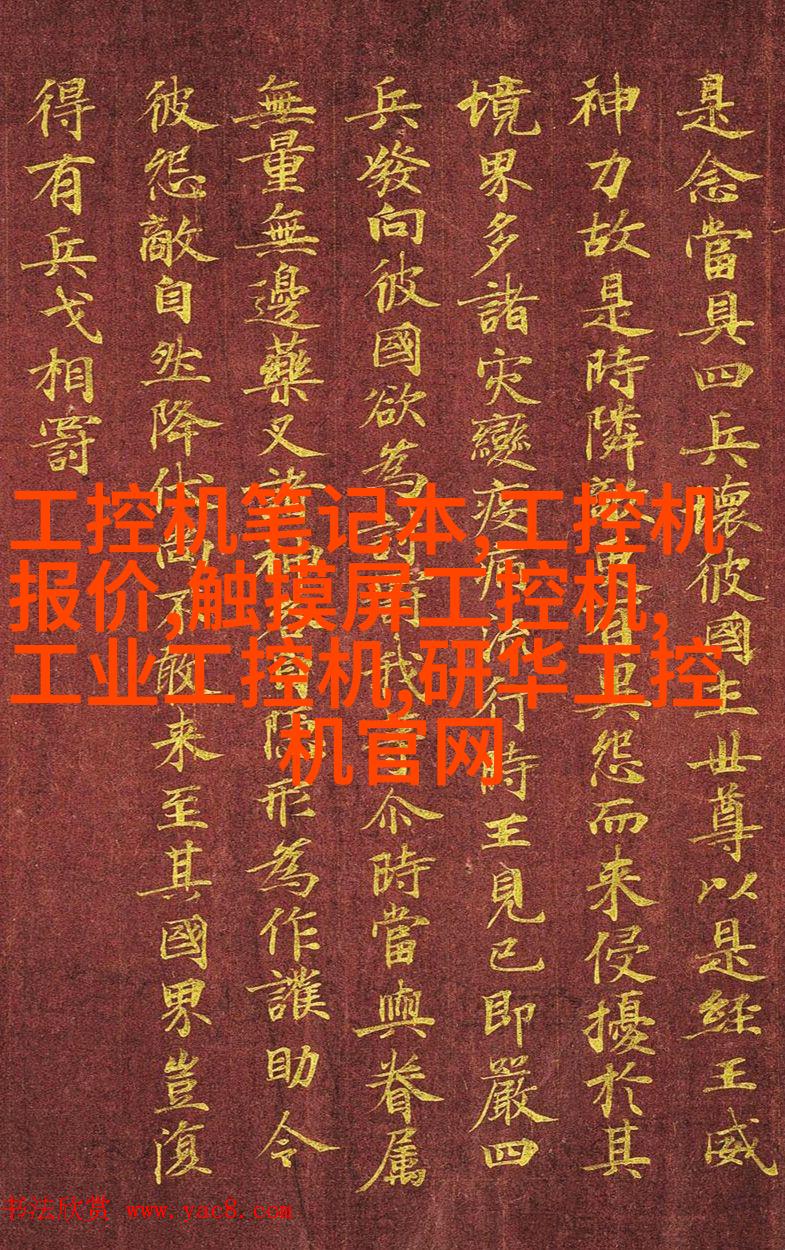 是念當具四兵壞彼國土世尊以是經王威
神力故是時隣敵更有異怨而来侵擾於其
境界多諸灾變疫病流行時王見已即嚴四
兵發向彼國欲為討罰我當尒時當與眷属
無量無邊藥叉諸神各自隱形為作護助令
彼怨敵自然降伏尚不敢来至其國界豈復
得有兵戈相罸
工控机笔记本,工控机
报价,触摸屏工控机,
工业工控机,研华工控
机官网
书法欣赏 www.yac8.com